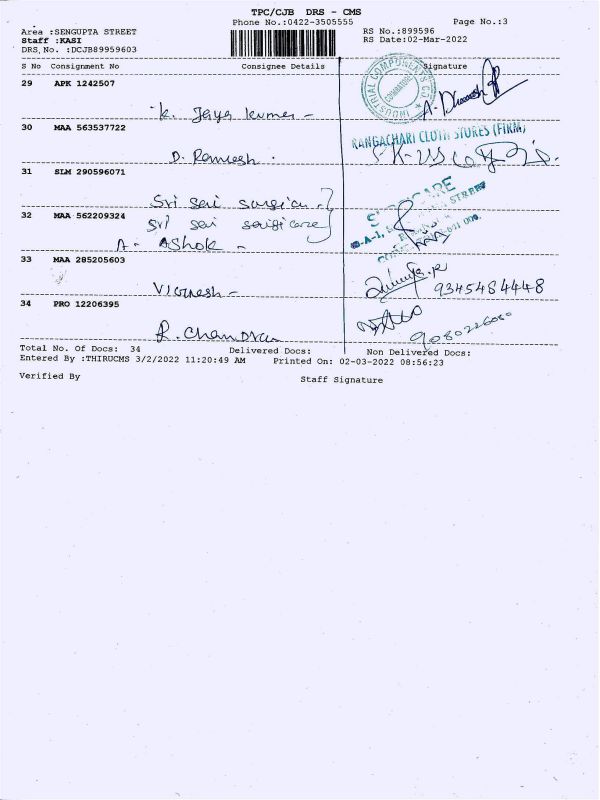 TPC/CJB DRS - CMS
Phone No.:0422-3505555
Page No.:3
Area :SENGUPTA STREET
RS No.:899596
Staff :KASI
RS Date:02-Mar-2022
DRS,No. :DCJB89959603
S No Consignment No Consignee Details Signature
29 APK 1242507
K. Jaya kumar -
INDUSTRIAL COMPONENTS CO
COIMBATORE
30 MAA 563537722
D. Ramesh .
RANGACHARI CLOTH STORES (FIRM)
31 SLM 290596071
Sri sai surgicu -
32 MAA 562209324
Sri sai surgicare
A - Ashok -
STREET
33 MAA 285205603
Vignesh -
9345484448
34 PRO 12206395
R. Chandran
9080226080
Total No. Of Docs: 34 Delivered Docs: Non Delivered Docs:
Entered By :THIRUCMS 3/2/2022 11:20:49 AM Printed On: 02-03-2022 08:56:23
Verified By
Staff Signature